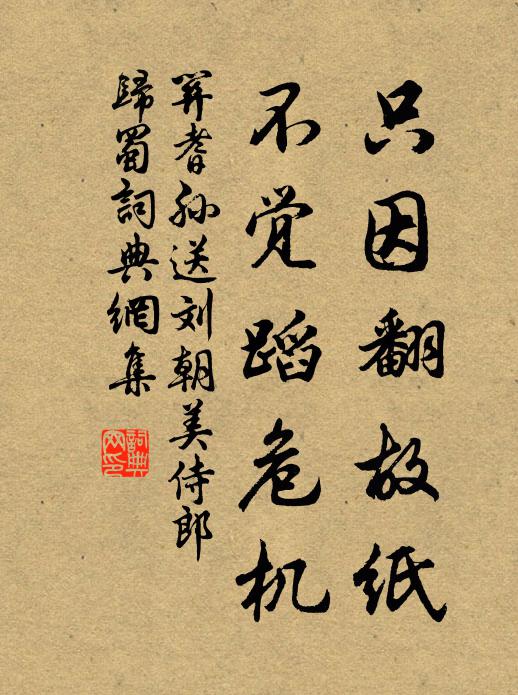 只因翻故纸
不觉蹈危机
笄耆孙送刘朝美侍郎
歸蜀詞典網集
詞典
网印